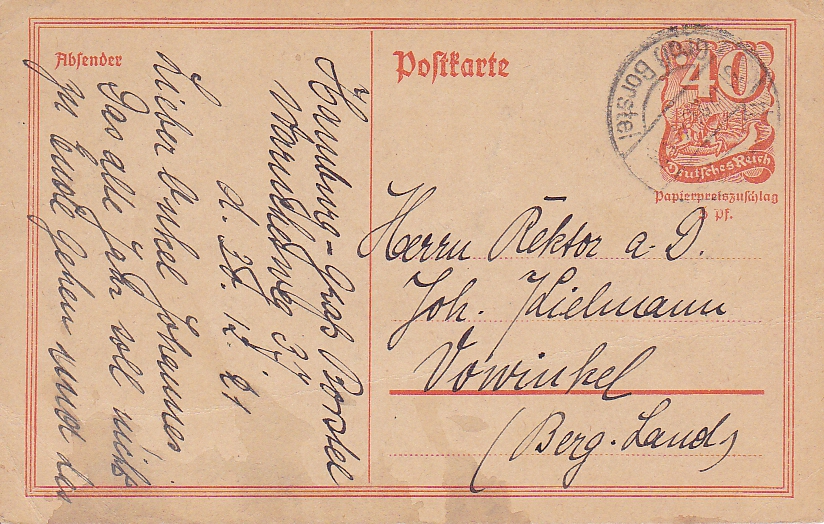 Absender
Postkarte
40
Deutsches Reich
Papierpreiszuschlag
5 Pf.
Borstel
Herrn Rektor a. D.
Joh. Kielmann
Vowinkel
(Berg. Land)
Hamburg-Groß Borstel
Warnckesweg 37
d. 28. 12. 21
Lieber Onkel Johannes
Das alte Jahr soll nicht
zu Ende gehen